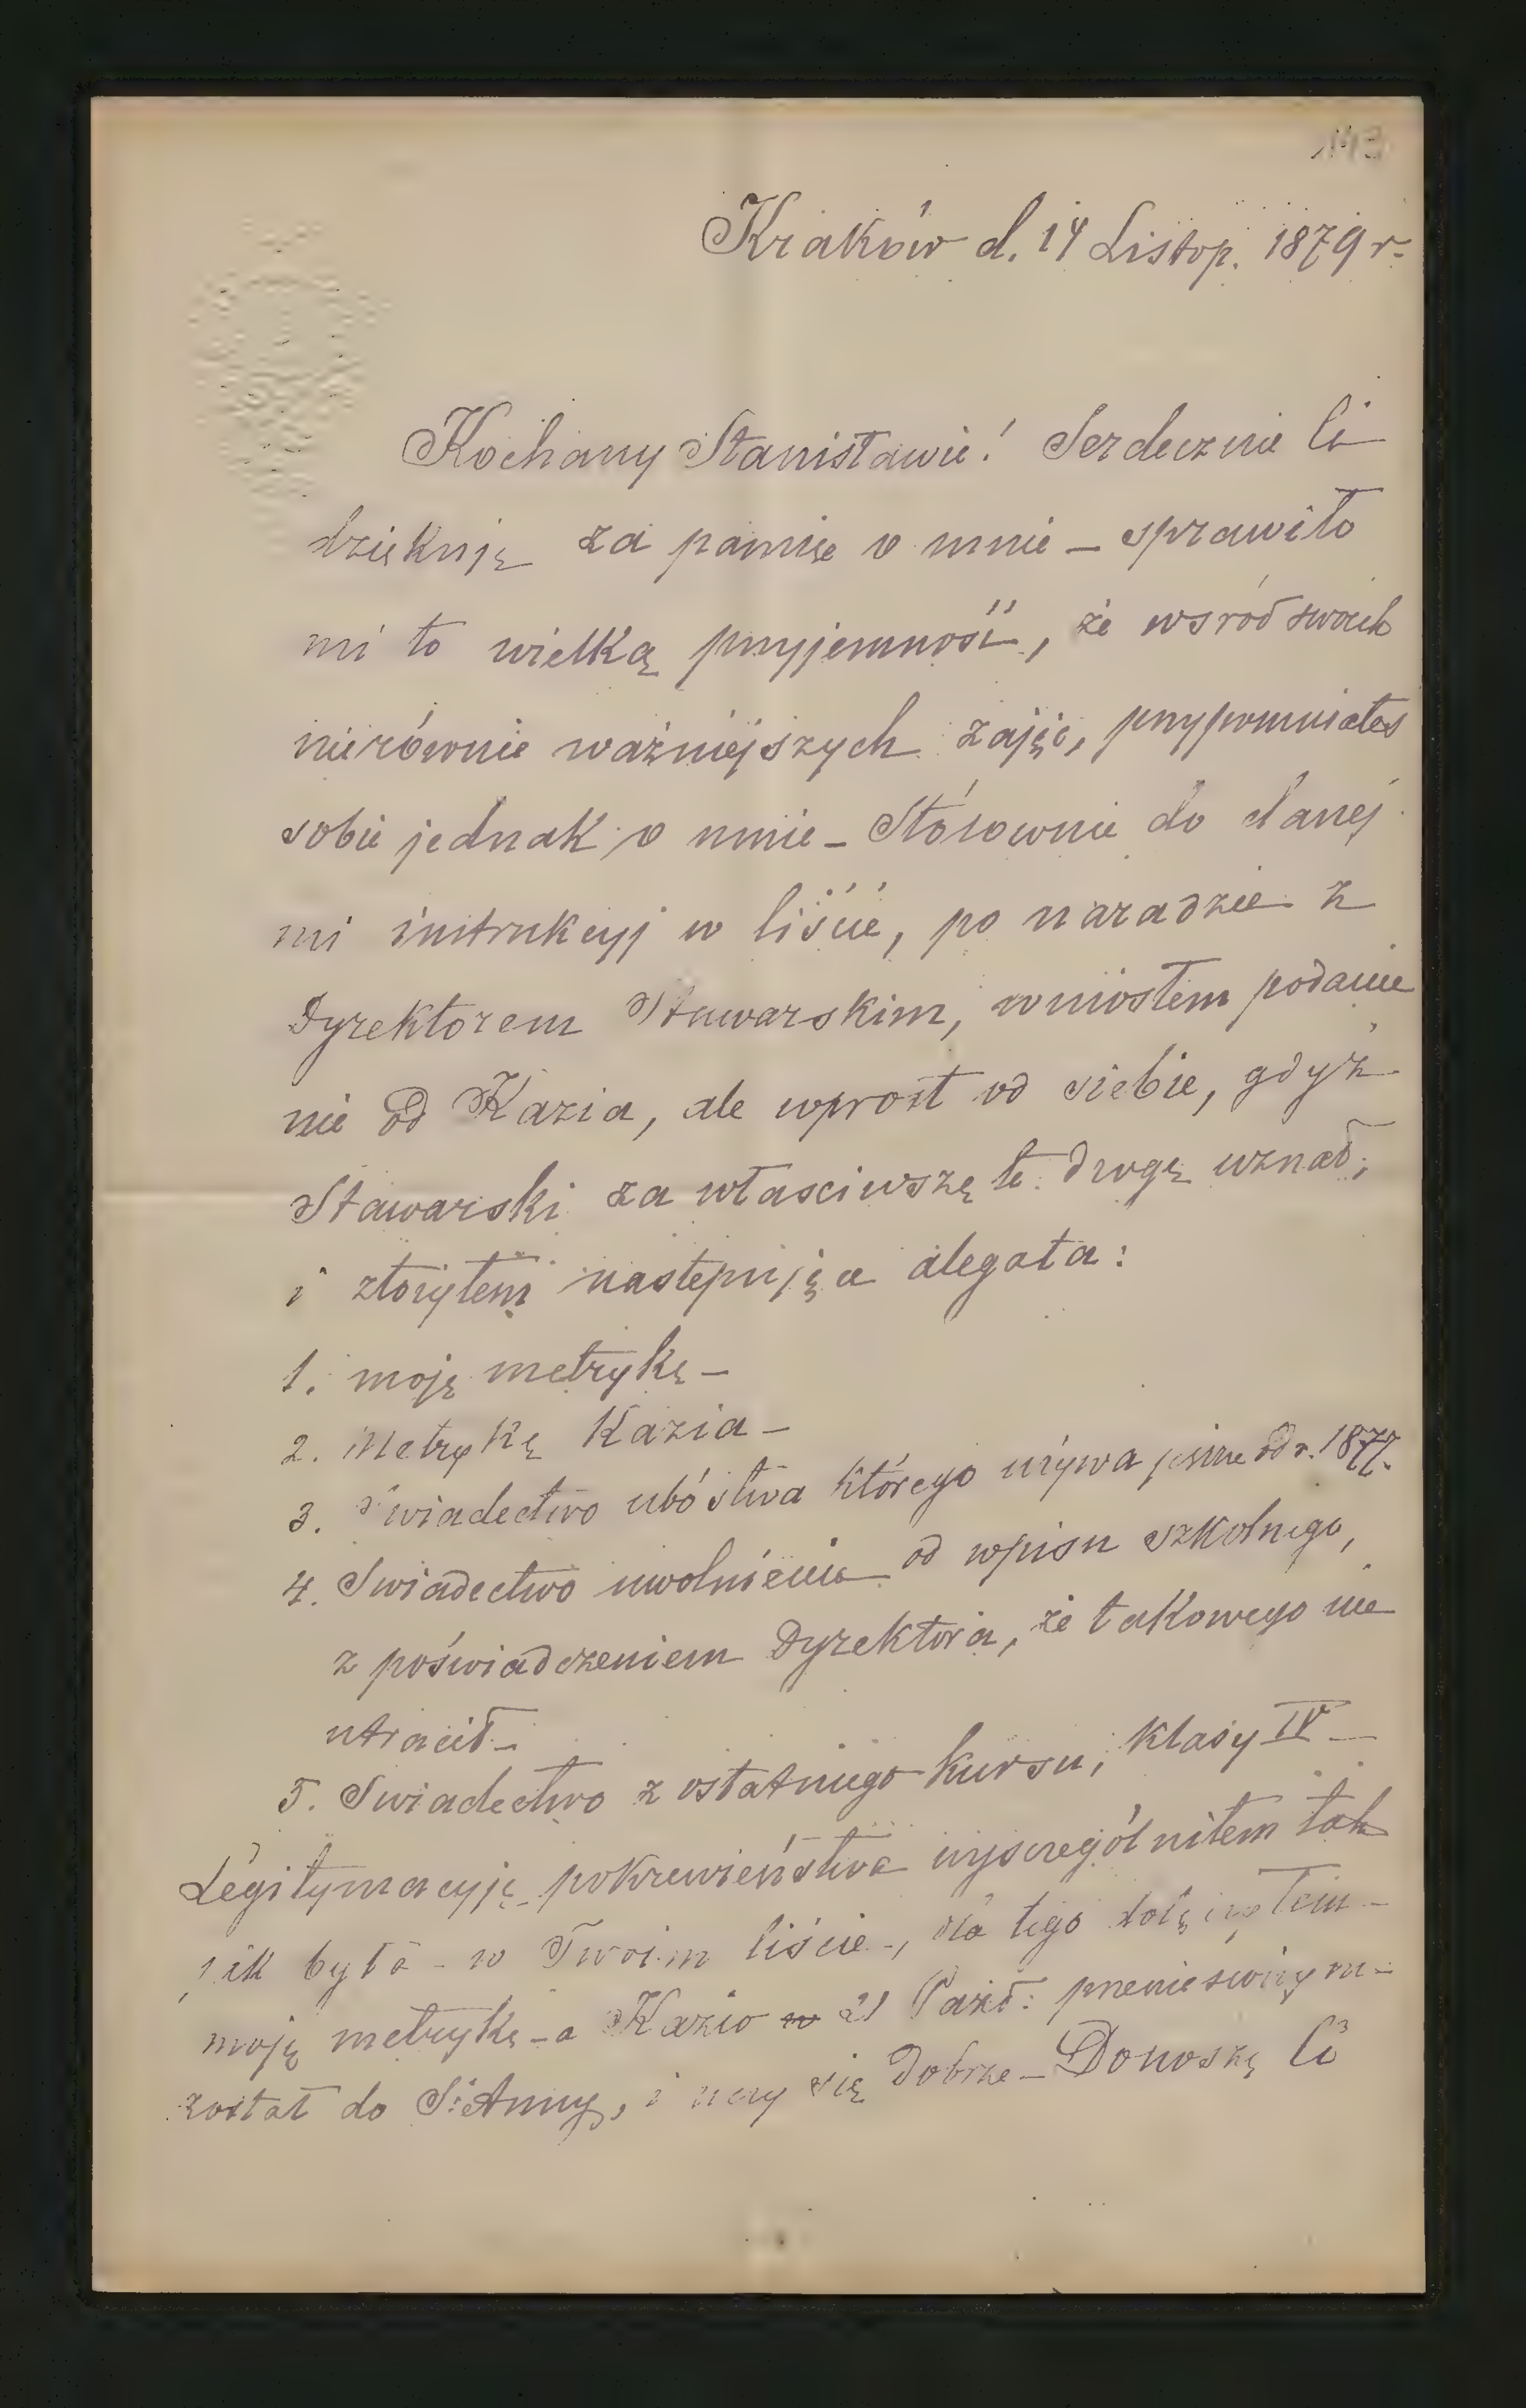 143
Kraków d. 14 Listop. 1879 r.
Kochany Stanisławie! Serdecznie Ci
dziękuję za pamięc o mnie – sprawiło
mi to wielką przyjemność, że wsród swoich
nierównie ważniejszych zajęć, przypomniałes
sobie jednak o mnie – Stósownie do danej
mi instrukcyj w liście, po naradzie z
Dyrektorem Stawarskim, wniosłem podanie
nie od Kazia, ale wprost od siebie, gdyż
Stawarski za własciwszę tę drogę uznał;
i złożyłem następujęce alegata:
1. moję metrykę –
2. Metrykę Kazia –
3. Swiadectwo ubóstwa którego używa jeszcze od r. 1877.
4. Swiadectwo uwolnienia od wpisu szkolnego,
z poświadczeniem Dyrektora, że takowego nie
utracił –
5. Swiadectwo z ostatniego kursu, klasy IV –
Legitymacyję pokrewieństwa wyszczególniłem tak
jak była – w Twoim liście –, dla tego dołęczyłem –
moję metrykę – a Kazio w 21 Paźd: przeniesiony –
został do S: Anny, i uczy się dobrze – Donoszę Ci